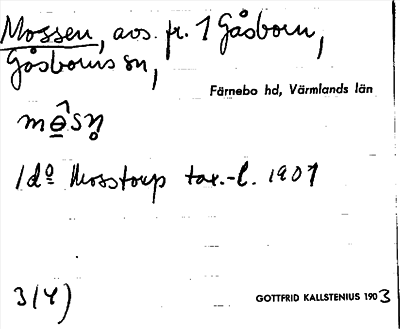 Mossen, avs. fr. 1 Gåsborn,
Gåsborns sn,
Färnebo hd, Värmlands län
1 d:o Mosstorp tax.-l. 1907
3/4)
GOTTFRID KALLSTENIUS 1903